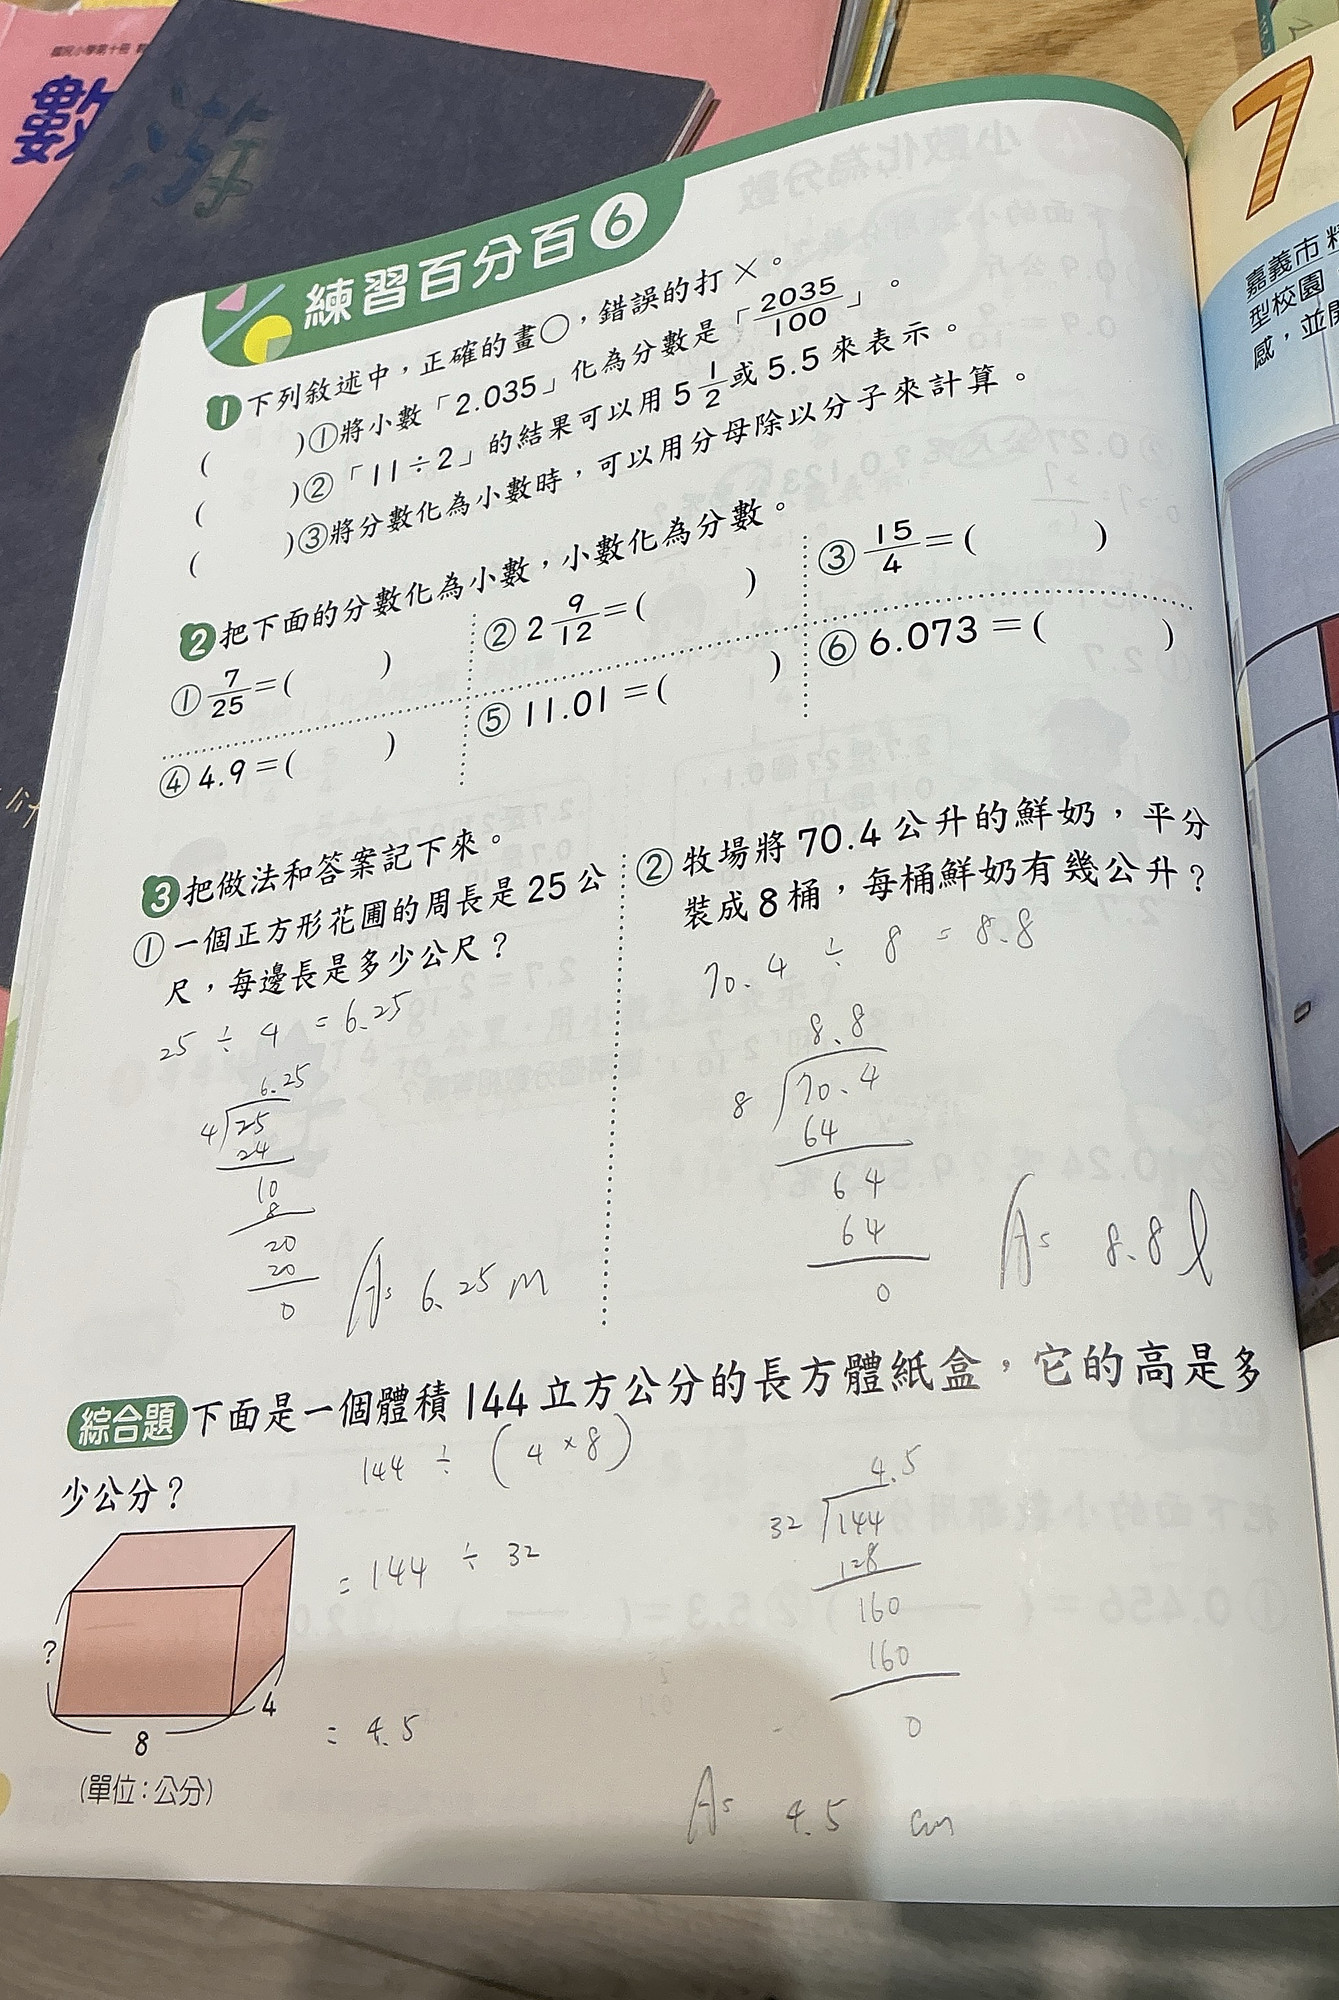 國民小學第十冊
數
游
練習百分百6
1 下列敘述中，正確的畫○，錯誤的打×。
( )①將小數「2.035」化為分數是「2035/100」。
( )②「11÷2」的結果可以用5 1/2或5.5來表示。
( )③將分數化為小數時，可以用分母除以分子來計算。
2 把下面的分數化為小數，小數化為分數。
① 7/25=( )
② 2 9/12=( )
③ 15/4=( )
④ 4.9=( )
⑤ 11.01=( )
⑥ 6.073=( )
3 把做法和答案記下來。
① 一個正方形花圃的周長是25公
尺，每邊長是多少公尺？
25 ÷ 4 = 6.25
6.25
4 25
24
10
8
20
20
0
As 6.25 m
② 牧場將70.4公升的鮮奶，平分
裝成8桶，每桶鮮奶有幾公升？
70.4 ÷ 8 = 8.8
8.8
8 70.4
64
64
64
0
As 8.8 l
綜合題 下面是一個體積144立方公分的長方體紙盒，它的高是多
少公分？
144 ÷ (4×8)
= 144 ÷ 32
= 4.5
4.5
32 144
128
160
160
0
As 4.5 cm
?
8
4
(單位：公分)
7
嘉義市
型校園
感，並